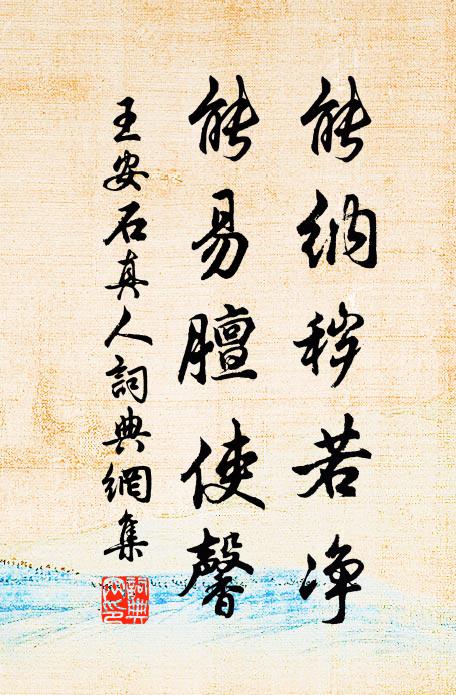 能納穢若净
能易膻使馨
王安石真人詞典網集